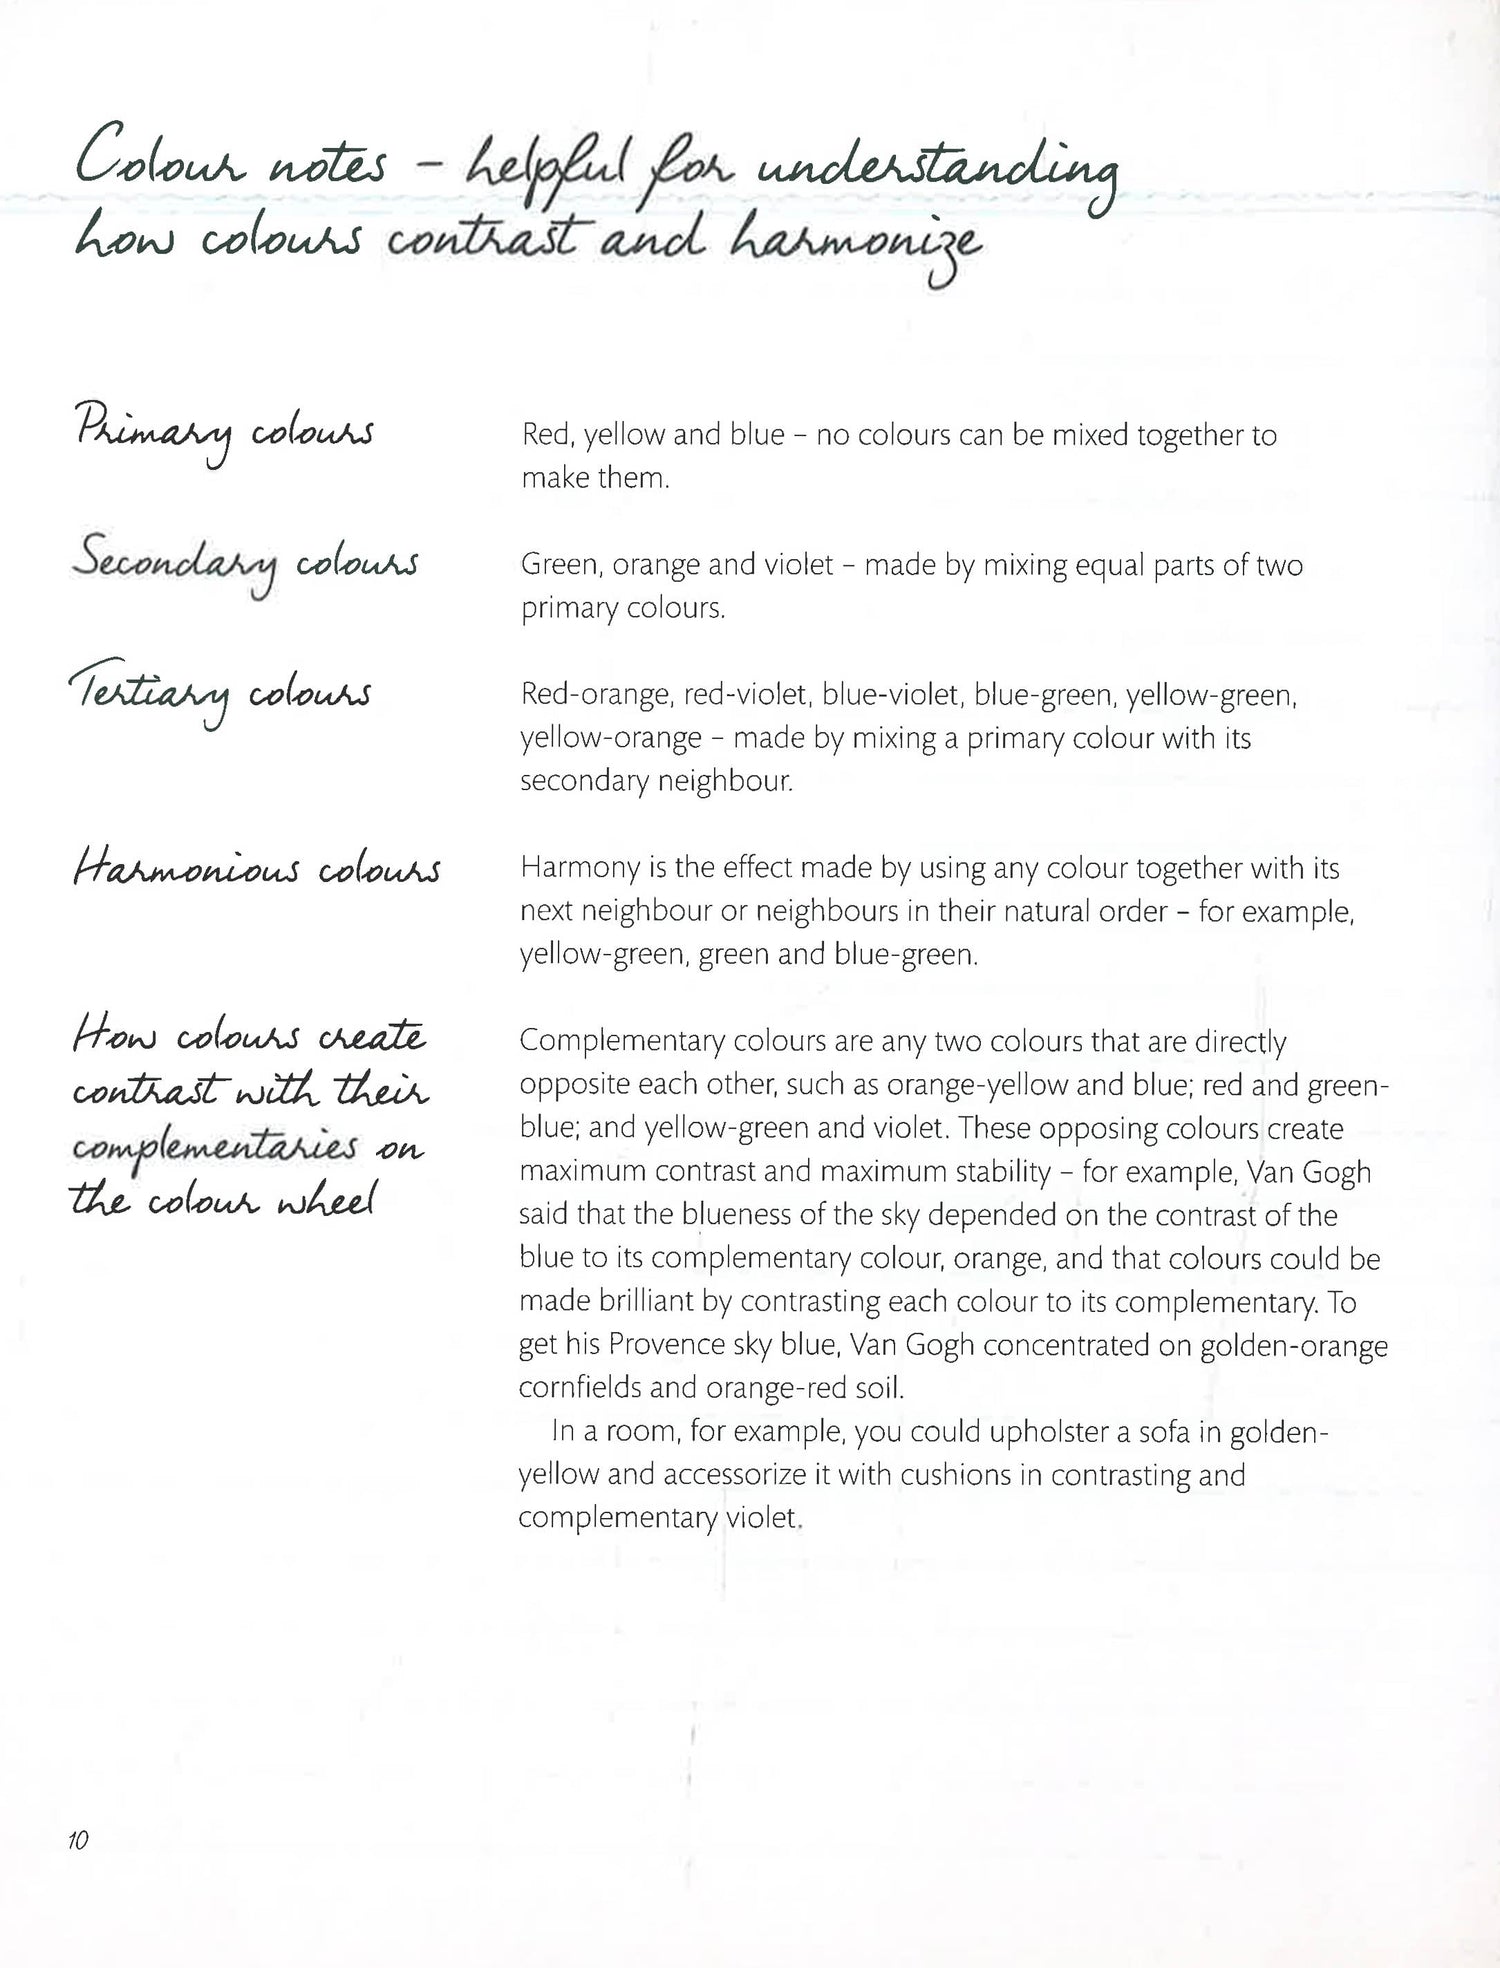 Colour notes – helpful for understanding
how colours contrast and harmonize
Primary colours
Red, yellow and blue – no colours can be mixed together to
make them.
Secondary colours
Green, orange and violet – made by mixing equal parts of two
primary colours.
Tertiary colours
Red-orange, red-violet, blue-violet, blue-green, yellow-green,
yellow-orange – made by mixing a primary colour with its
secondary neighbour.
Harmonious colours
Harmony is the effect made by using any colour together with its
next neighbour or neighbours in their natural order – for example,
yellow-green, green and blue-green.
How colours create
contrast with their
complementaries on
the colour wheel
Complementary colours are any two colours that are directly
opposite each other, such as orange-yellow and blue; red and green-
blue; and yellow-green and violet. These opposing colours create
maximum contrast and maximum stability – for example, Van Gogh
said that the blueness of the sky depended on the contrast of the
blue to its complementary colour, orange, and that colours could be
made brilliant by contrasting each colour to its complementary. To
get his Provence sky blue, Van Gogh concentrated on golden-orange
cornfields and orange-red soil.
In a room, for example, you could upholster a sofa in golden-
yellow and accessorize it with cushions in contrasting and
complementary violet.
10